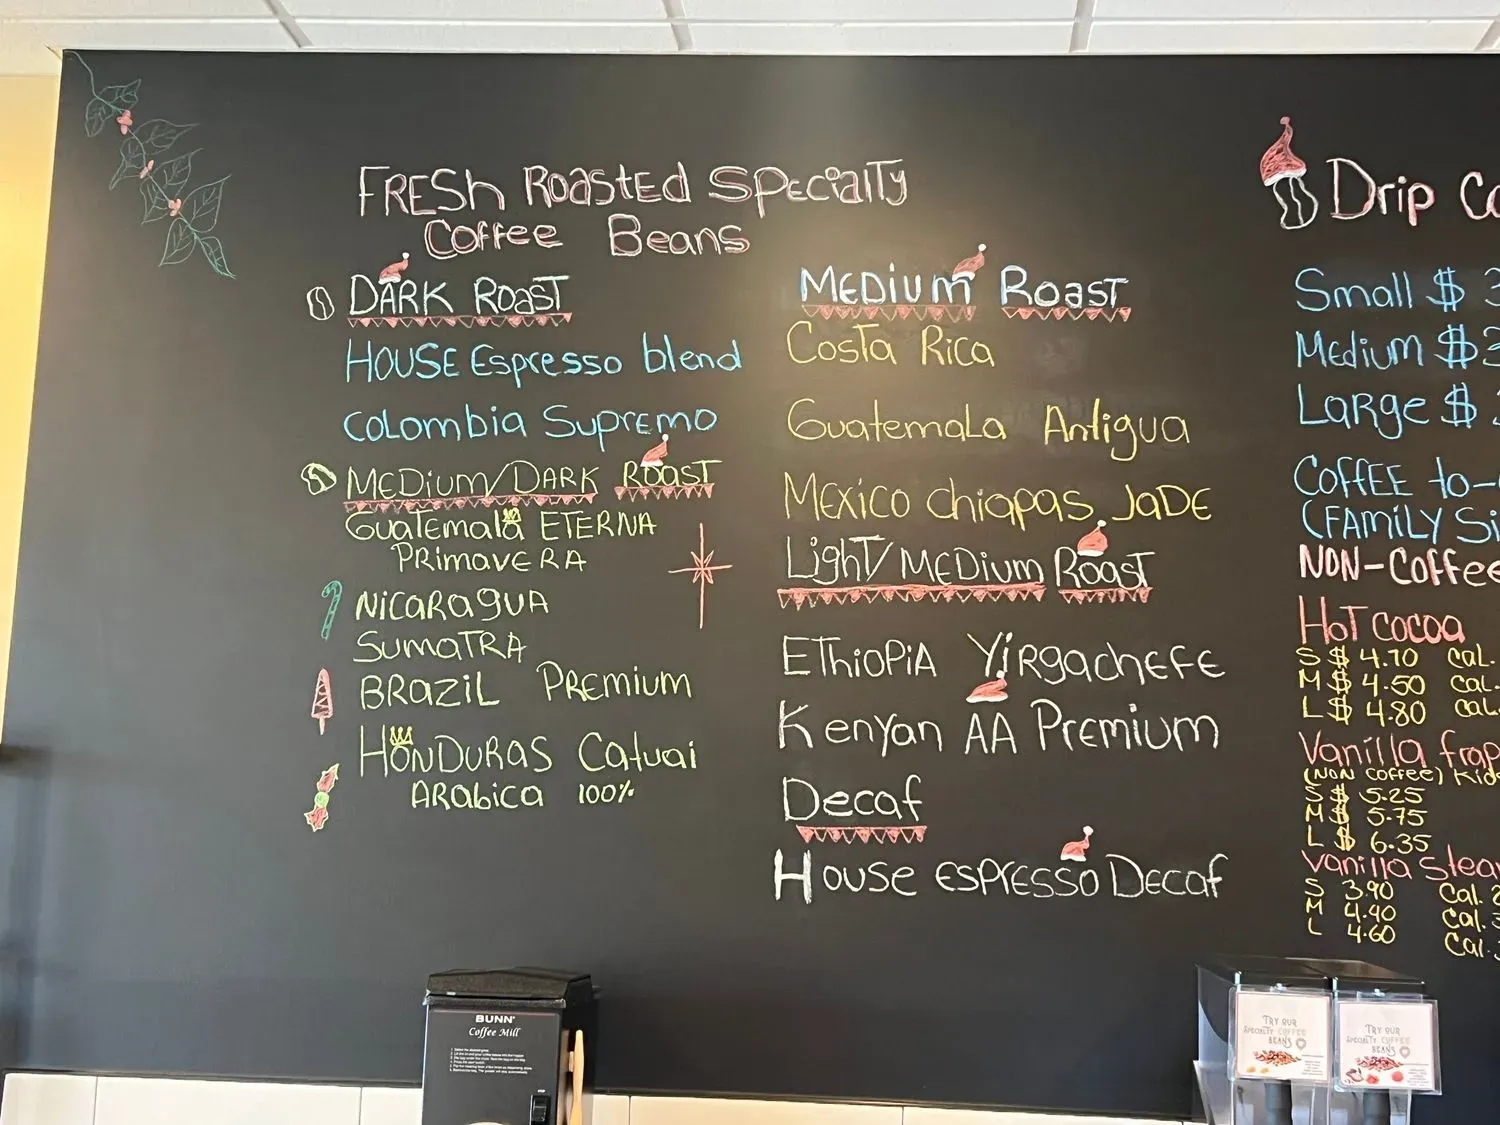 FRESh RoasTED SPEcialTy
Coffee Beans
DARK RoasT
HOUSE Espresso blend
coLombia SuprEmo
MEDium/DARK RoasT
GuaTemala ETERNA
PRimavERA
NiCaRagUA
SumaTRA
BRaZiL PREmium
HONDURAS Catuai
ARabica 100%
MEDium RoasT
CosTa Rica
GuatemaLa Antigua
MEXICO chiapas JaDE
LighT/MEDium RoasT
EThioPiA YiRgachEFE
Kenyan AA PrEmium
Decaf
House ESPRESSO DEcaf
Drip
Small $
MEdium $
LaRge $
COffEE to-
(FAMiLY
NON-Coffee
HoT cocoa
S $ 4.70 Cal.
M $ 4.50 Cal.
L $ 4.80 Cal.
Vanilla
(NON Coffee)
S $ 5.25
M $ 5.75
L $ 6.35
Vanilla
S 3.90 Cal.
M 4.40 Cal.
L 4.60 Cal.
BUNN
Coffee Mill
TRY OUR
SPECIALTY COFFEE
BEANS
TRY OUR
SPECIALTY COFFEE
BEANS